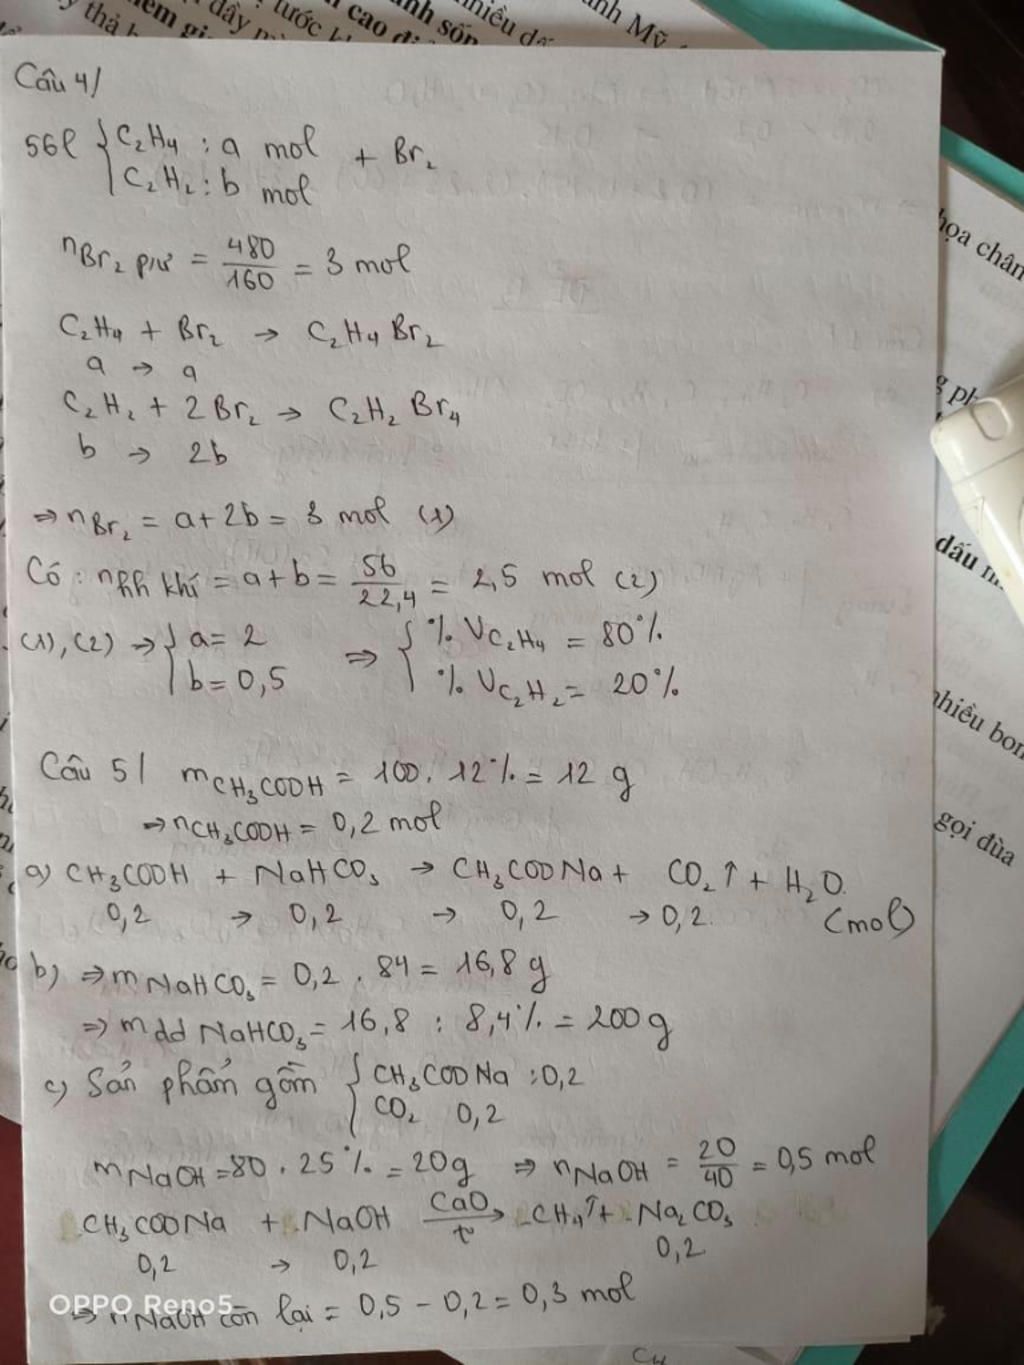 thả
dây
tước
cao
nh sốn
nhiều
nh Mỹ
Câu 4/
56l { C₂H₄ : a mol + Br₂
C₂H₂ : b mol
nBr₂ pư = 480/160 = 3 mol
C₂H₄ + Br₂ → C₂H₄Br₂
a → a
C₂H₂ + 2Br₂ → C₂H₂Br₄
b → 2b
⇒ nBr₂ = a + 2b = 3 mol (1)
Có : nhh khí = a + b = 56/22,4 = 2,5 mol (2)
(1), (2) → { a = 2 ⇒ { % VC₂H₄ = 80%
b = 0,5 % VC₂H₂ = 20%
Câu 5/ mCH₃COOH = 100 . 12% = 12 g
⇒ nCH₃COOH = 0,2 mol
a) CH₃COOH + NaHCO₃ → CH₃COONa + CO₂↑ + H₂O
0,2 → 0,2 → 0,2 → 0,2 (mol)
b) ⇒ mNaHCO₃ = 0,2 . 84 = 16,8 g
⇒ mdd NaHCO₃ = 16,8 : 8,4% = 200 g
c) Sản phẩm gồm { CH₃COONa : 0,2
CO₂ 0,2
mNaOH = 80 . 25% = 20g ⇒ nNaOH = 20/40 = 0,5 mol
CH₃COONa + NaOH CaO/t° → CH₄↑ + Na₂CO₃
0,2 → 0,2 0,2
⇒ nNaOH còn lại = 0,5 - 0,2 = 0,3 mol
OPPO Reno5
họa chân
dấu
nhiều bon
gọi đùa